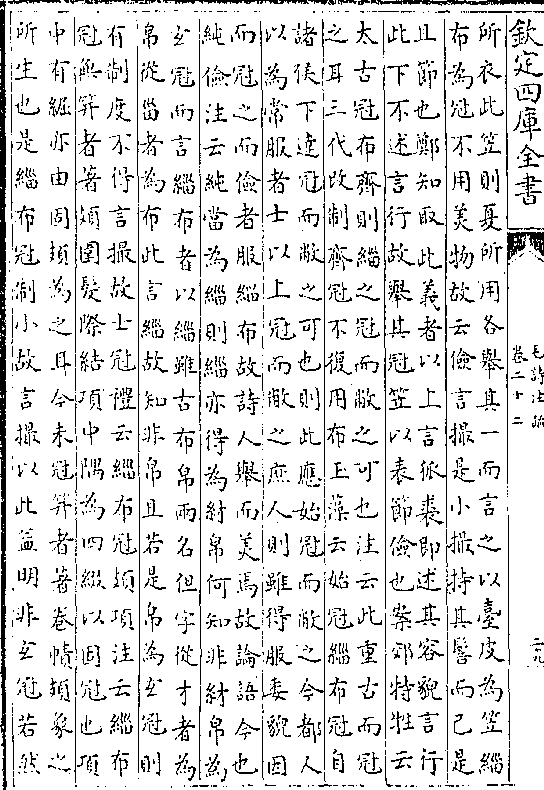 欽定四庫全書
毛詩注疏
卷二十二
所衣此笠則夏所用各舉其一而言之以臺皮為笠緇
布為冠不用美物故云儉言撮是小撮持其髻而已是
且節也鄭知取此義者以上言狐裘即述其容貌言行
此下不述言行故舉其冠笠以表節儉也案郊特牲云
太古冠布齊則緇之冠而敝之可也注云此重古而冠
之耳三代改制齊冠不復用布玉藻云始冠緇布冠自
諸侯下達冠而敝之可也則此應始冠而敝之今都人
以為常服者士以上冠而敝之庶人則雖得服委貌因
而冠之而儉者服緇布故詩人舉而美焉故論語今也
純儉注云純當為緇則緇亦得為紂帛何知非紂帛為
玄冠而言緇布者以緇雖古布帛兩名但字從才者為
帛從甾者為布此言緇故知非帛且若是帛為玄冠則
有制度不得言撮故士冠禮云緇布冠頍項注云緇布
冠無笄者著頍圍髮際結項中隅為四綴以固冠也項
中有䋿亦由固頍為之耳今未冠笄者著卷幘頍象之
所生也是緇布冠制小故言撮以此益明非玄冠若然